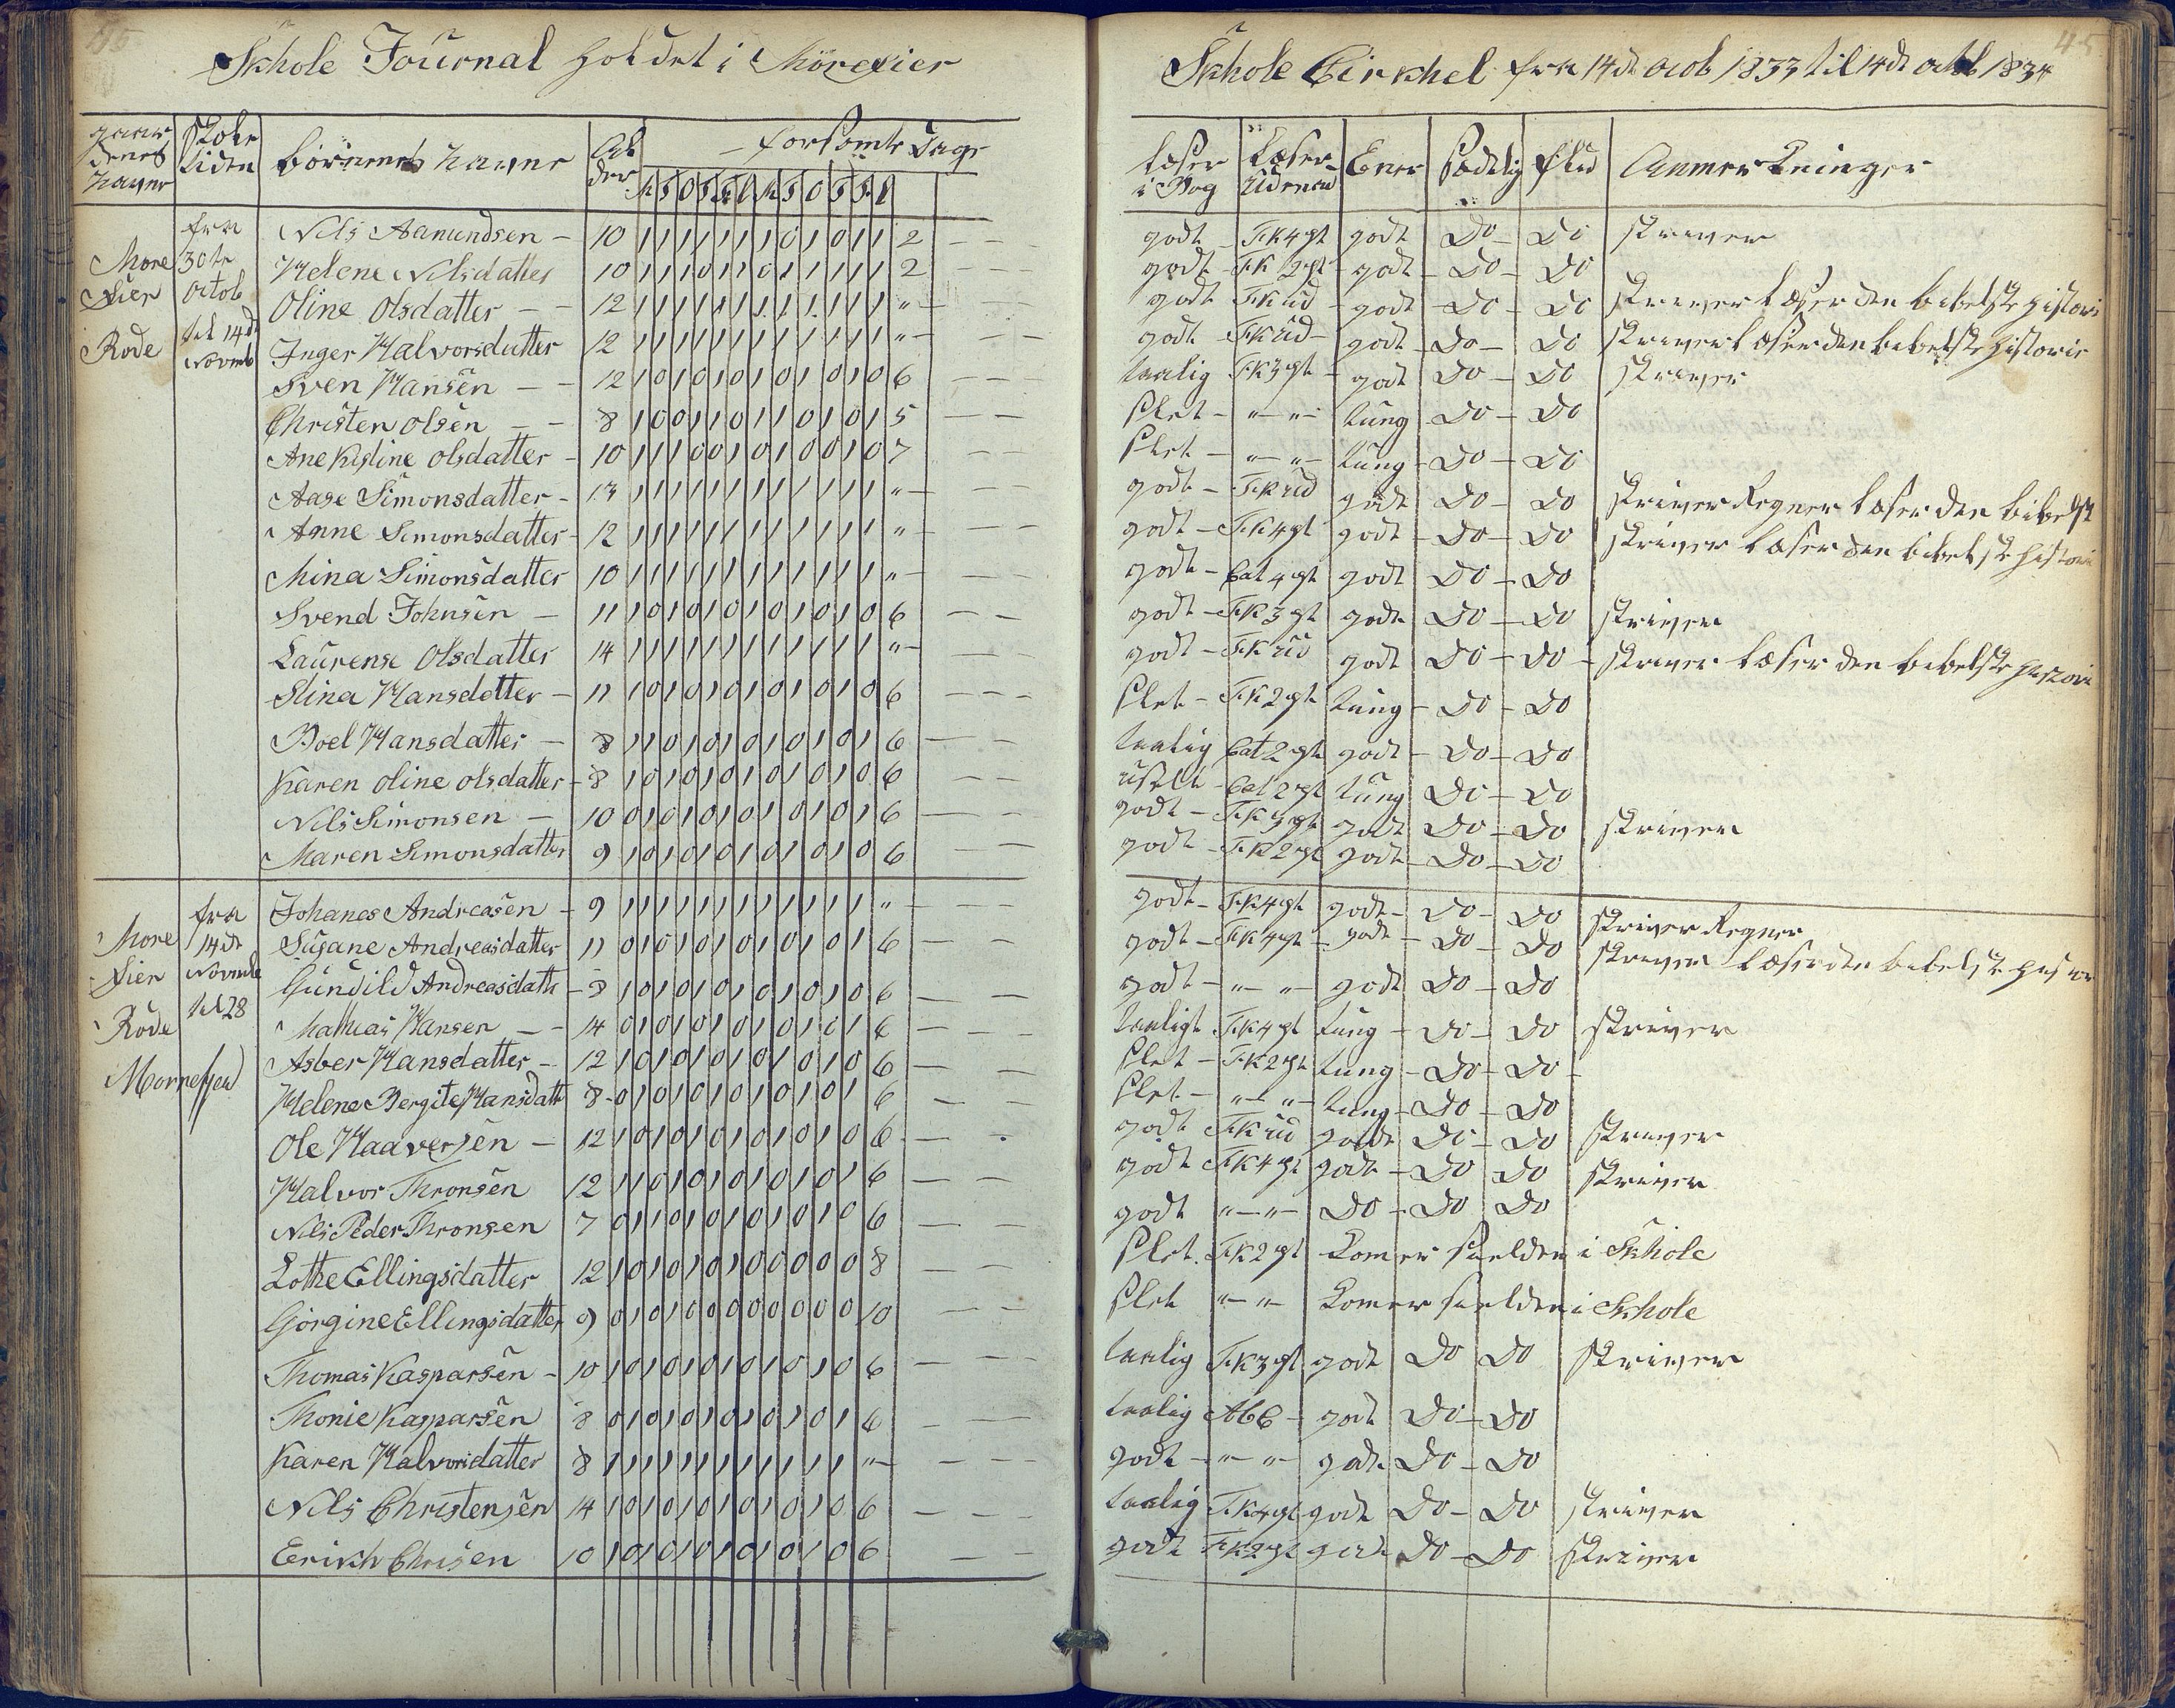 45
Skhole Journal holdet i Morefier
gaardenes navne
Skole tiden
børnenes navne
Alder
forsømte Dage
M T O T F L M T O T F L
More fier Rode
fra 30te octob til 14de Novmb
Nils Aamundsen – 10 1 1 1 1 1 1 1 0 1 0 1 1 2
Helene Nilsdatter 10 1 1 1 0 1 1 0 1 1 1 1 1 2
Oline Olsdatter – 12 1 1 1 1 1 1 1 1 1 1 1 1 "
Inger Halvorsdatter 12 1 1 1 1 1 1 1 1 1 1 1 1 "
Sven Hansen – 12 1 0 1 0 1 0 1 0 1 0 1 0 6
Christen Olsen – 8 1 0 0 1 1 0 1 1 0 1 0 1 5
Ane Kistine Olsdatter – 10 1 1 1 0 0 1 0 1 0 0 1 0 7
Aase Simonsdatter – 13 1 1 1 1 1 1 1 1 1 1 1 1 "
Anne Simonsdatter – 12 1 1 1 1 1 1 1 1 1 1 1 1 "
Mina Simonsdatter 10 1 1 1 1 1 1 1 1 1 1 1 1 "
Svend Johnsen – 11 1 0 1 0 1 0 1 0 1 0 1 0 6
Laurense Olsdatter 14 1 1 1 1 1 1 1 1 1 1 1 1 "
Stina Hansdatter – 11 1 0 1 0 1 0 1 0 1 0 1 0 6
Boel Hansdatter – 8 1 1 0 1 0 1 0 1 0 1 0 1 6
Karen Oline Olsdatter – 8 1 0 1 0 1 0 1 0 1 0 1 0 6
Nils Simonsen – 10 0 1 0 1 0 1 0 1 0 1 0 1 6
Maren Simonsdatter 9 1 0 1 0 1 0 1 0 1 0 1 0 6
More fier Rode Mornefjeld
fra 14de Novmb til 28
Johanes Andreasen – 9 1 1 1 1 1 1 1 1 1 1 1 1 "
Susane Andreasdatter 11 0 1 0 1 0 1 0 1 0 1 0 1 6
Gundild Andreasdatt – 8 1 0 1 0 1 0 1 0 1 0 1 0 6
Mathias Hansen – 14 0 1 0 1 0 1 0 1 0 1 0 1 6
Asber Hansdatter – 12 1 0 1 0 1 0 1 0 1 0 1 0 6
Helene Bergite Hansdatt 8 0 1 0 1 0 1 0 1 0 1 0 1 6
Ole Haaversen – 12 1 0 1 0 1 0 1 0 1 0 1 0 6
Halvor Thronsen 12 1 1 0 1 0 1 0 1 0 1 0 1 6
Nils Peder Thronsen 7 0 1 1 0 1 0 1 0 1 0 1 0 6
Lothe Ellingsdatter 12 1 0 1 0 1 0 1 0 0 0 0 0 8
Görgine Ellingsdatter 9 0 1 0 1 0 0 0 0 0 0 0 0 10
Thomas Kasparsen – 10 1 0 1 0 1 0 1 0 1 0 1 0 6
Thonie Kasparsen 8 0 1 0 1 0 1 0 1 0 1 0 1 6
Karen Halvorsdatter 8 1 1 1 1 1 1 1 1 1 1 1 1 "
Nils Christensen 14 1 0 1 0 1 0 1 0 1 0 1 0 6
Erikh Chrisen 10 1 0 1 0 1 0 1 0 1 0 1 0 6
45
Skhole Cirkhel fra 14de Octb 1833 til 14de octob 1834
Læser i Bog
Læser Udenad
Evner
Sædelig
flid
Anmerkninger
godt – F.K 4 pt godt Do – Do skriver
godt – F.K 2 pt – godt – Do – Do
godt F.K ud – godt – Do – Do skriver læser den bibelske histori
godt – F.K ud – godt – Do – Do skriver læser den bibelske historie
taalig F.K 3 pt – godt Do – Do skriver
slet – " – " – tung – Do – Do
slet – " – " – tung – Do – Do
godt – F.K ud godt Do – Do skriver Regner læser den bibelst
godt – F.K 4 pt godt – Do – Do skriver læser den bibelske histori
godt – Cat 4 pt godt Do – Do
godt – F.K 3 pt godt Do – Do skriver
godt – F.K ud godt Do – Do – skriver læser den bibelske histori
slet – F.K 2 pt tung – Do – Do
taalig Cat 2 pt godt – Do – Do
uselt – Cat 2 pt tung Do – Do
godt – F.K 3 pt godt Do – Do skriver
godt – F.K 2 pt godt – Do – Do
godt – F.K 4 pt godt – Do – Do skriver Regner
godt – F.K 4 pt – godt – Do – Do skriver læser den bibelske histor
godt – " – " – godt Do – Do
taaligt F.K 4 pt tung – Do – Do skriver
slet – F.K 2 pt tung – Do – Do –
slet – " – " – tung – Do – Do
godt F.K ud godt Do – Do skriver
godt F.K 4 pt godt – Do Do skriver
godt " – " – Do – Do Do
slet. F.K 2 pt Komer sielden i Skhole
slet " – " – Komer sielden i Skhole
taalig F.K 3 pt godt Do Do skriver
taalig AbC – godt Do – Do
godt – " – " – godt Do – Do
taalig F.K 4 pt godt Do – Do skriver
godt F.K 2 pt godt Do – Do skriver